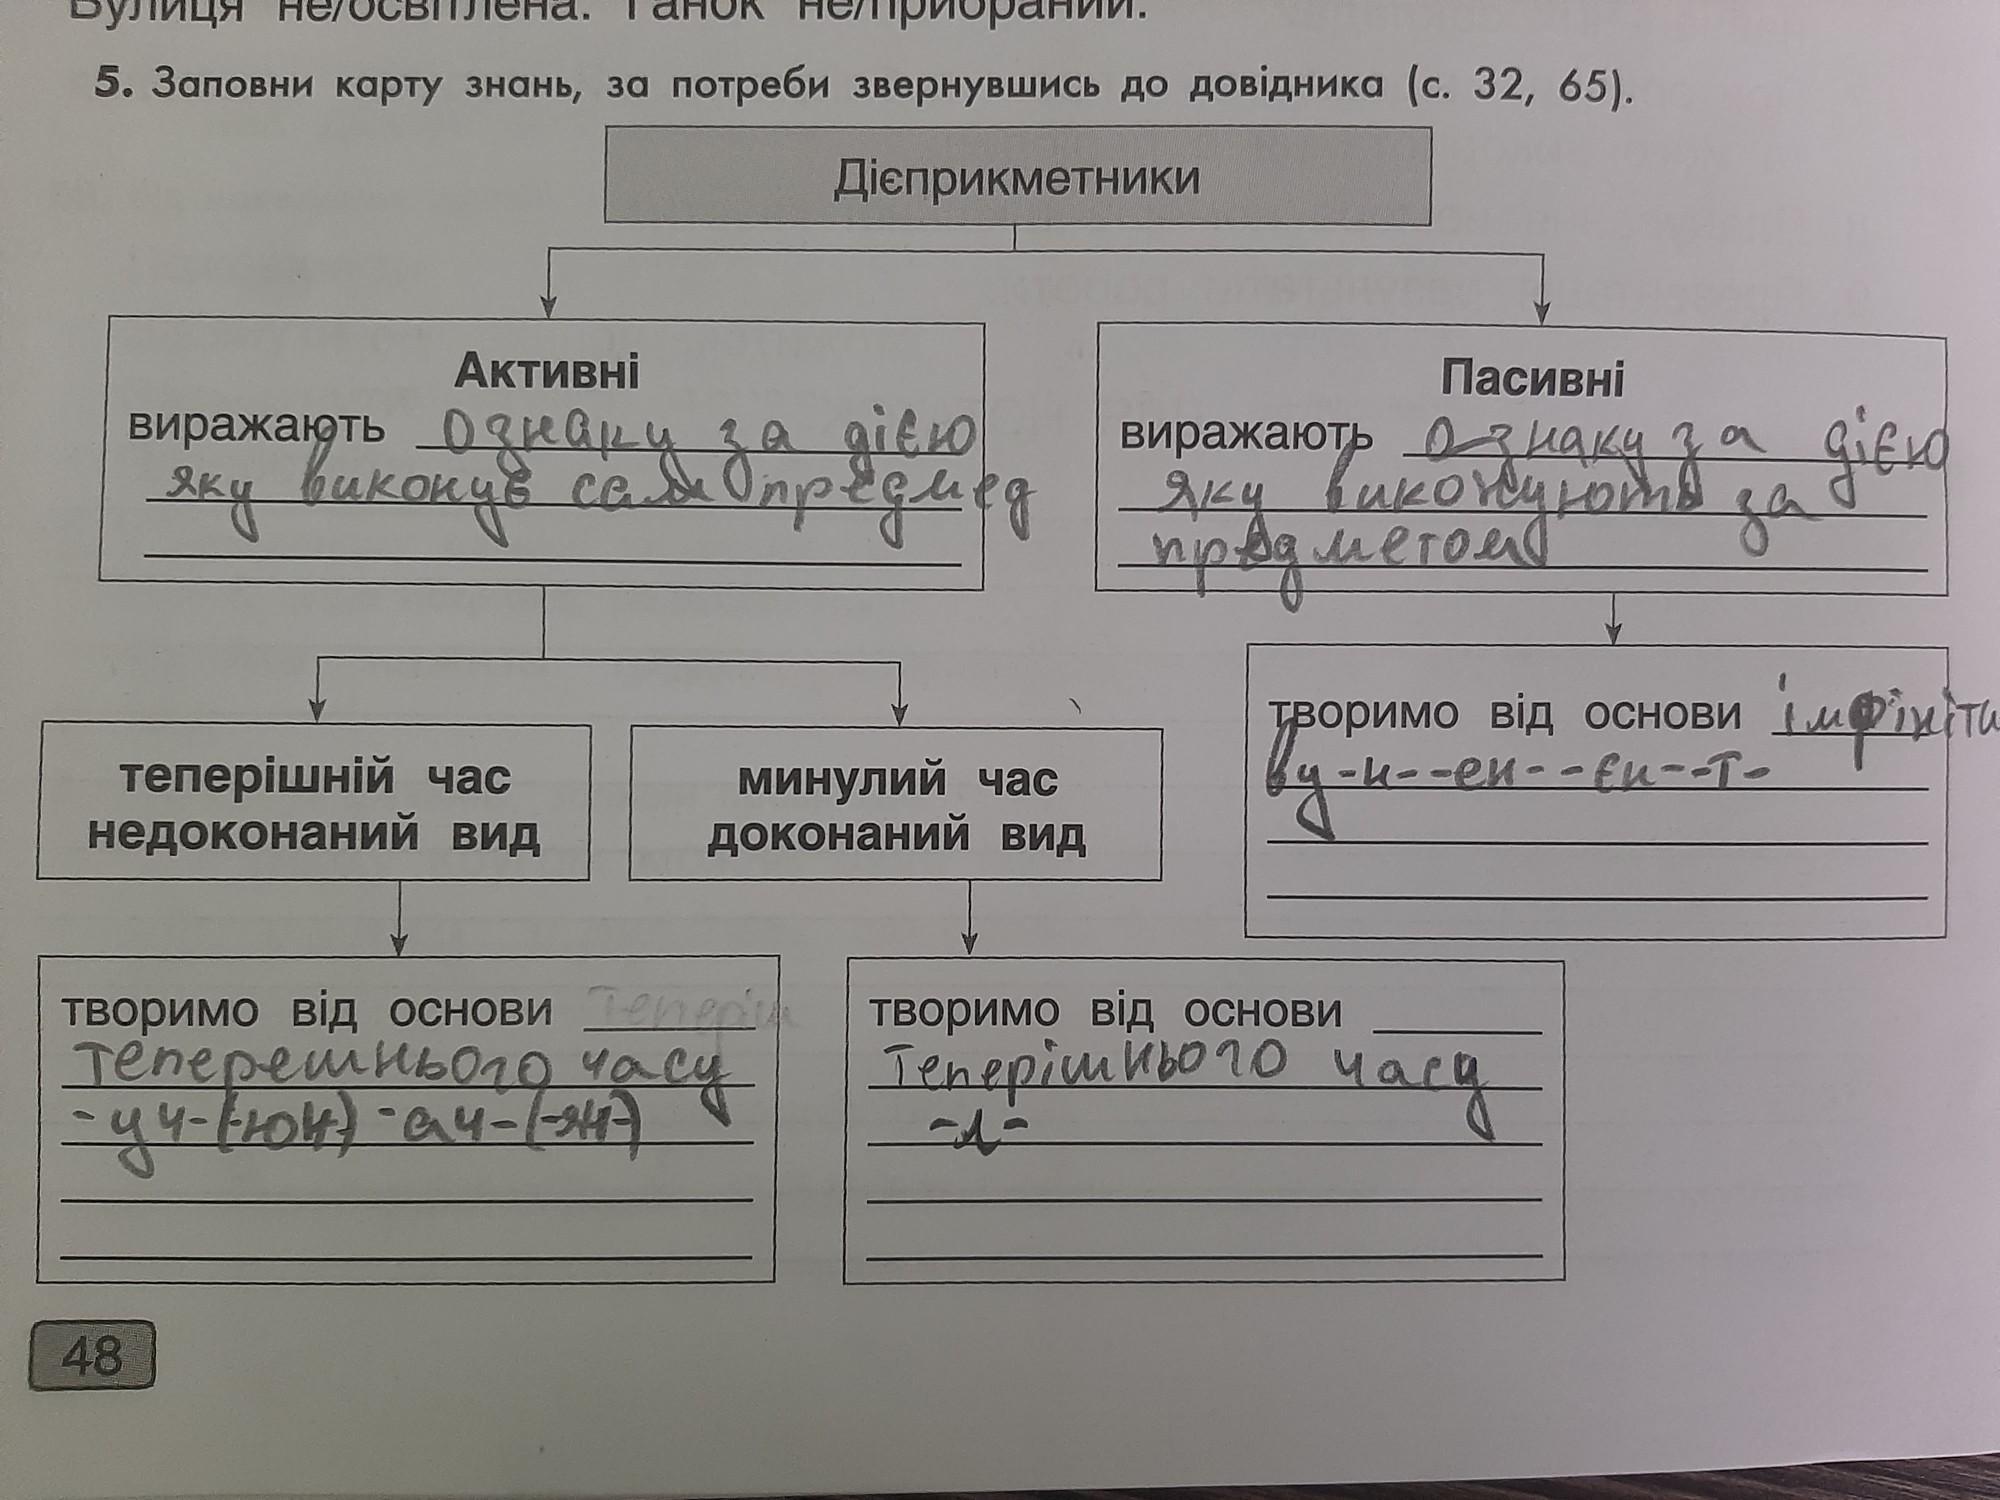 Вулиця не/освітлена. Ганок не/прибраний.
5. Заповни карту знань, за потреби звернувшись до довідника (с. 32, 65).
Дієприкметники
Активні
виражають ознаку за дією
яку виконує сам предмед
Пасивні
виражають ознаку за дією
яку виконують за
предметом
теперішній час
недоконаний вид
минулий час
доконаний вид
творимо від основи імфініти
ву -н- -ен- -єн- -т-
творимо від основи Теперіш
теперешнього часу
-уч-(-юч-) -ач-(-яч-)
творимо від основи
Теперішнього часу
-л-
48